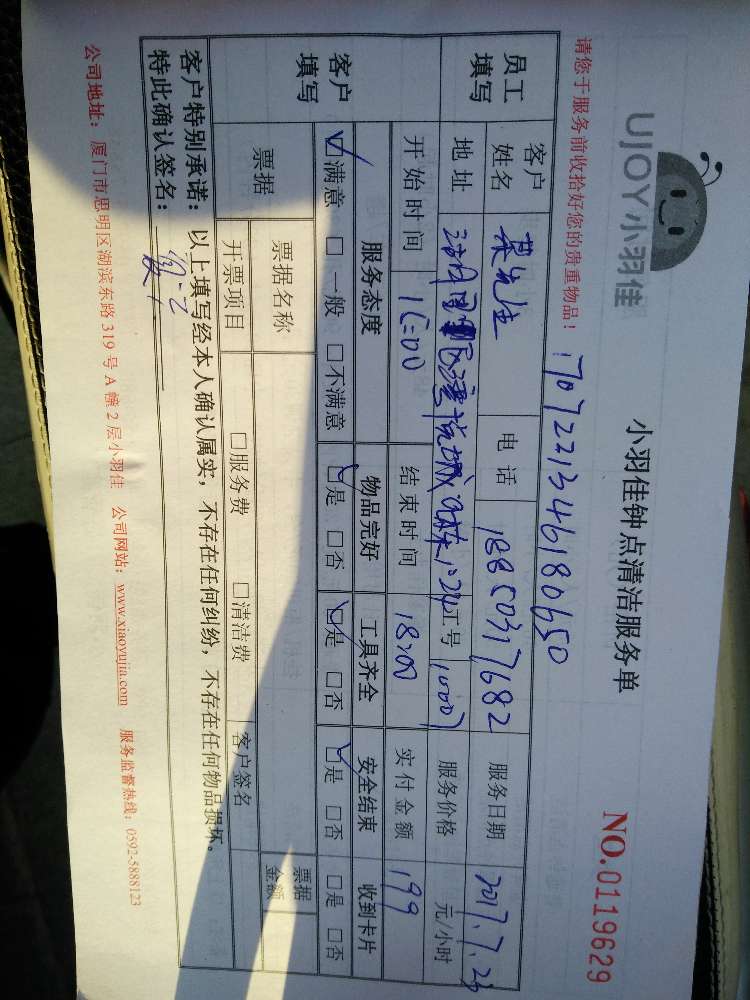 UJOY小羽佳
小羽佳钟点清洁服务单
NO.0119629
请您于服务前收拾好您的贵重物品!
1707221346180650
员工填写
客户姓名 先生 电话 18850317682 服务日期 2017.7.23
地址 工号 服务价格 元/小时
开始时间 16:00 结束时间 18:00 实付金额 199
客户填写
服务态度 物品完好 工具齐全 安全结束 收到卡片
☑满意 □一般 □不满意 ☑是 □否 ☑是 □否 ☑是 □否 □是 □否
票据 票据名称 票据金额
开票项目 □服务费 □清洁费 客户签名
客户特别承诺:以上填写经本人确认属实,不存在任何纠纷,不存在任何物品损坏。
特此确认签名:
公司地址:厦门市思明区湖滨东路319号A幢2层小羽佳 公司网站:www.xiaoyujia.com 服务监督热线:0592-5888123